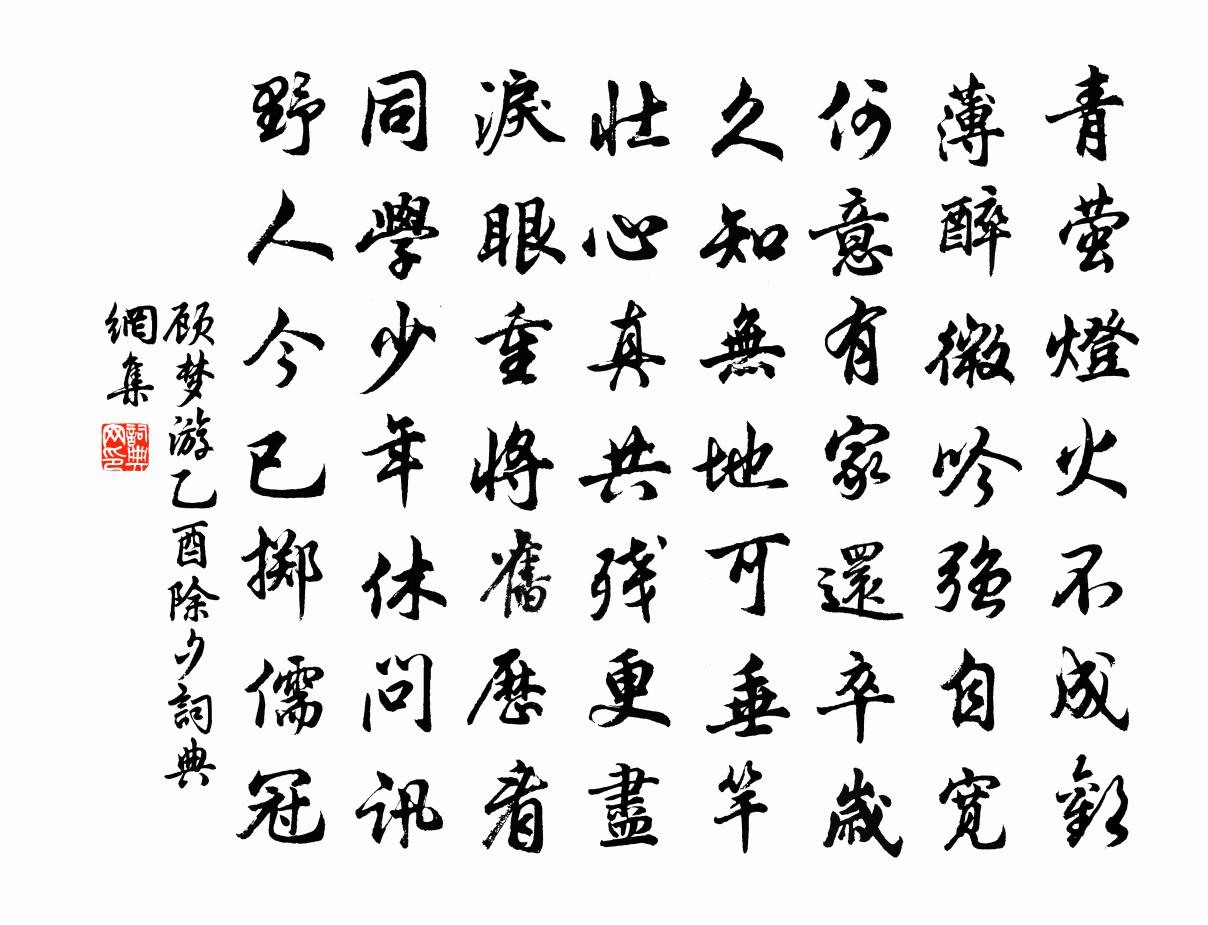 青萤燈火不成歡
薄醉微吟强自寬
何意有家還卒歲
久知無地可垂竿
壯心真共残更盡
淚眼重將舊歷看
同學少年休問訊
野人今已擲儒冠
顾梦游乙酉除夕詞典
網集
詞典网印